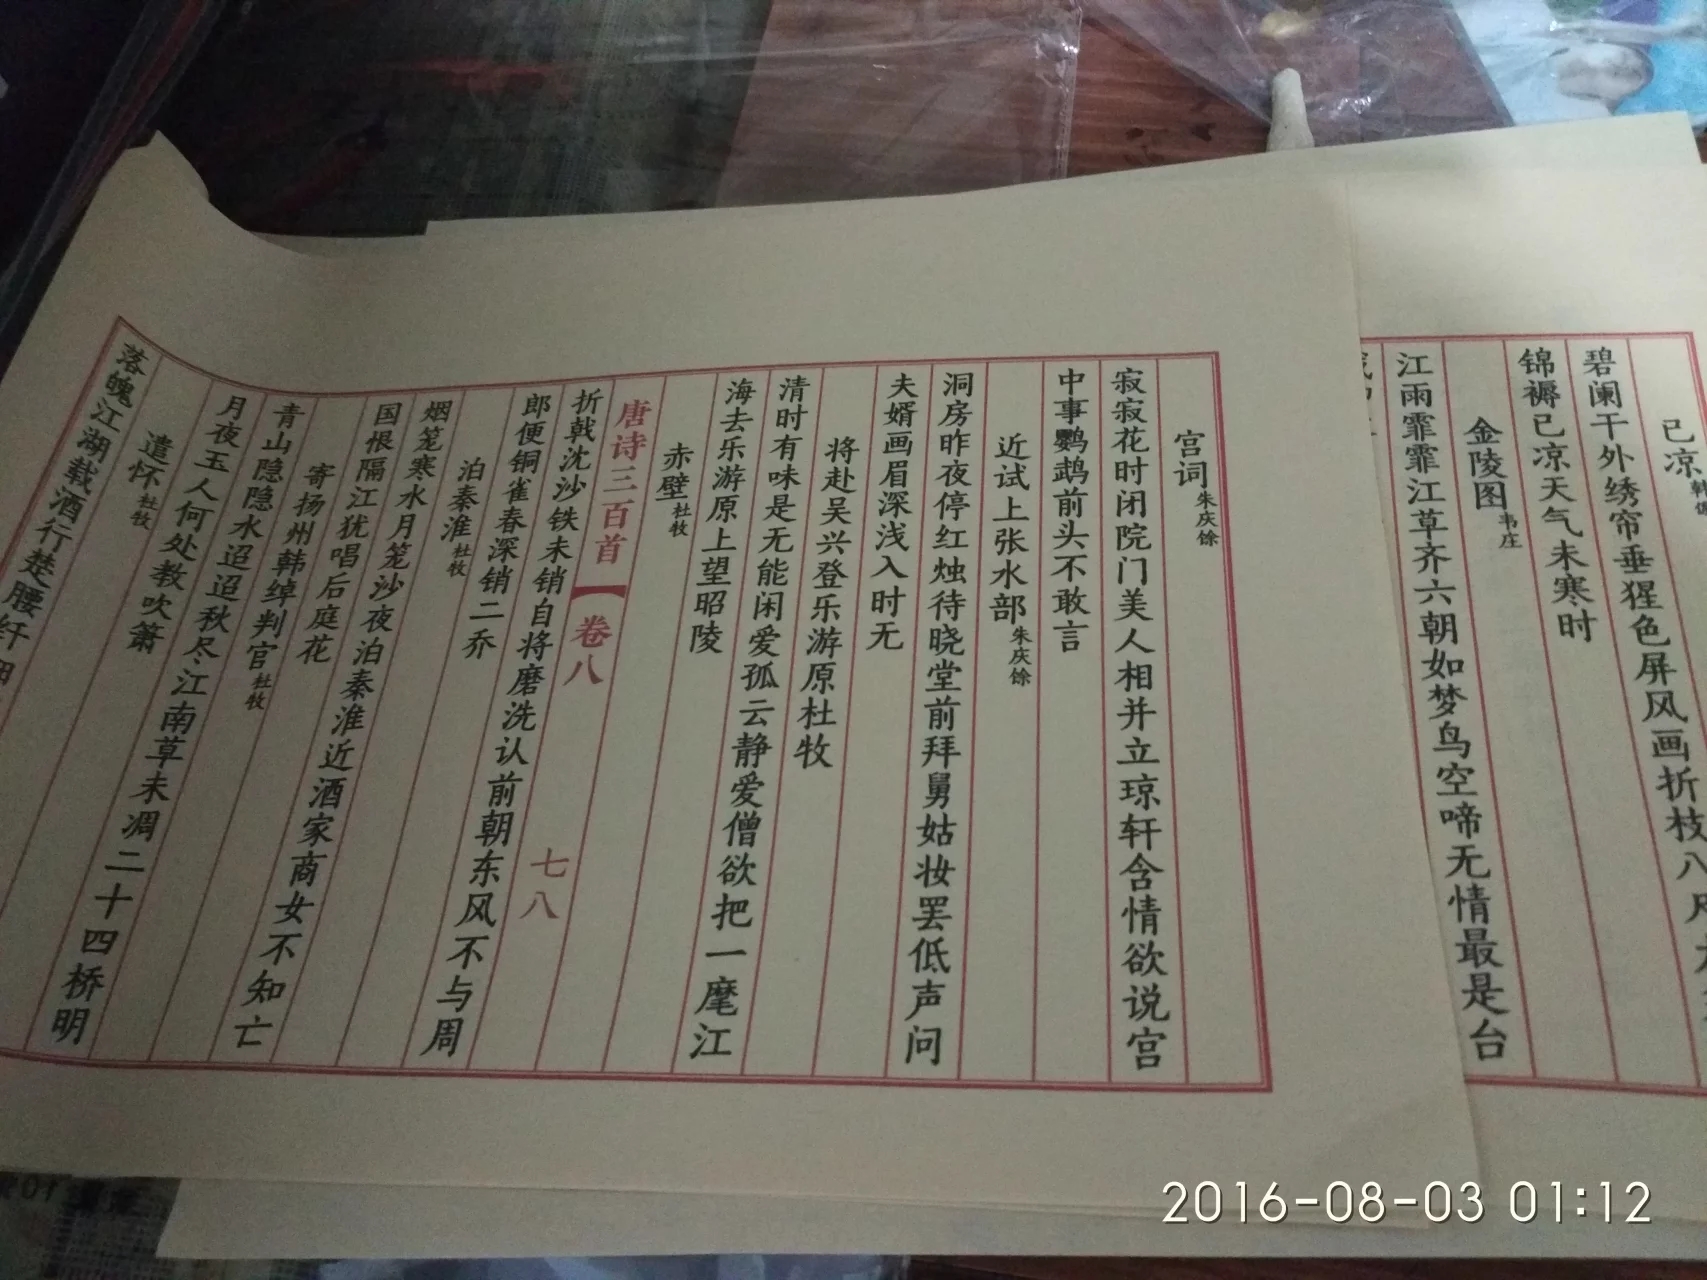 宫词 朱庆馀
寂寂花时闭院门美人相并立琼轩含情欲说宫
中事鹦鹉前头不敢言
近试上张水部 朱庆馀
洞房昨夜停红烛待晓堂前拜舅姑妆罢低声问
夫婿画眉深浅入时无
将赴吴兴登乐游原杜牧
清时有味是无能闲爱孤云静爱僧欲把一麾江
海去乐游原上望昭陵
赤壁 杜牧
唐诗三百首【卷八
七八
折戟沈沙铁未销自将磨洗认前朝东风不与周
郎便铜雀春深销二乔
泊秦淮 杜牧
烟笼寒水月笼沙夜泊秦淮近酒家商女不知亡
国恨隔江犹唱后庭花
寄扬州韩绰判官 杜牧
青山隐隐水迢迢秋尽江南草未凋二十四桥明
月夜玉人何处教吹箫
遣怀 杜牧
落魄江湖载酒行楚腰纤
已凉
碧阑干外绣帘垂猩色屏风画折枝八尺
锦褥已凉天气未寒时
金陵图 韦庄
江雨霏霏江草齐六朝如梦鸟空啼无情最是台
2016-08-03 01:12